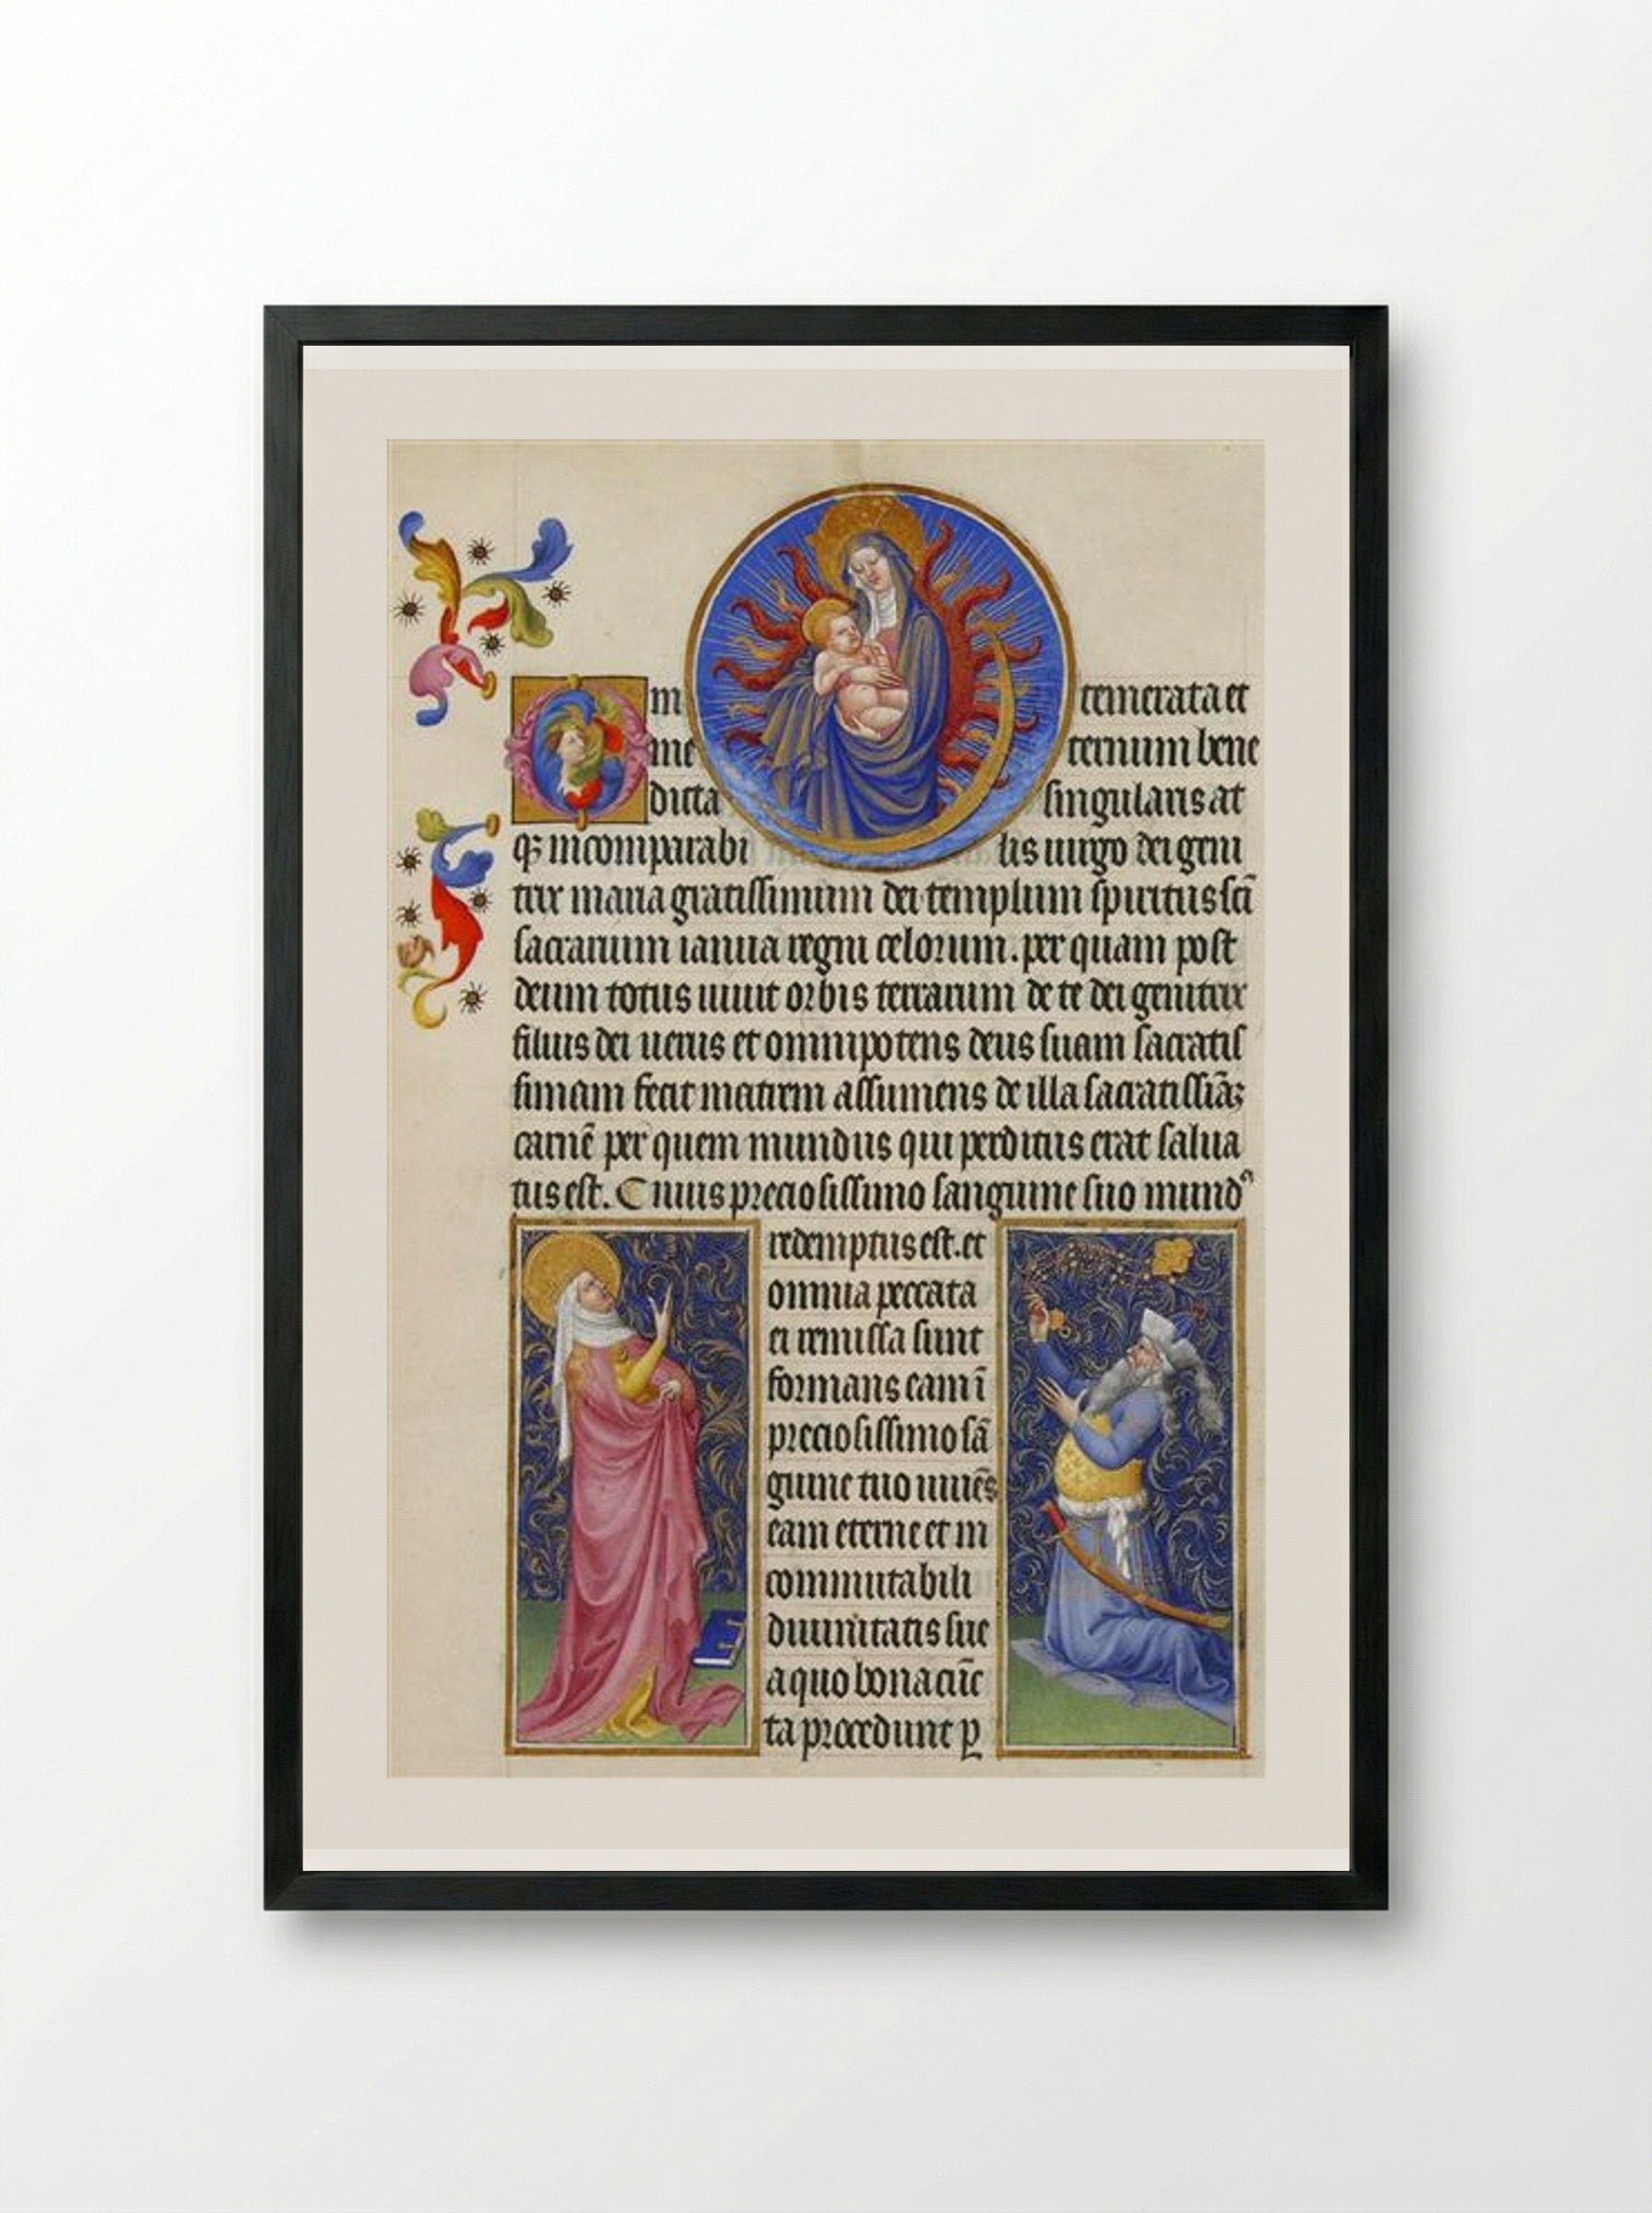 O m temerata et
me ternum bene
dicta singularis at
qȝ incomparabi lis uirgo dei geni
trix maria gratissimum dei templum spiritus sc̄i
sacrarium ianua regni celorum. per quam post
deum totus uiuit orbis terrarum de te dei genitrix
filius dei uerus et omnipotens deus suam sacratis
simam fecit matrem assumens de illa sacratissiāȝ
carnē per quem mundus qui perditus erat salua
tus est. Cuuis preciosissimo sanguine suo mund
redemptus est. et
omnia peccata
ei remissa sunt
formans eam ī
preciosissimo sā
guine tuo uniēs
eam eterne et in
commutabili
diuinitatis sue
a quo bona cūc
ta procedunt ꝑ